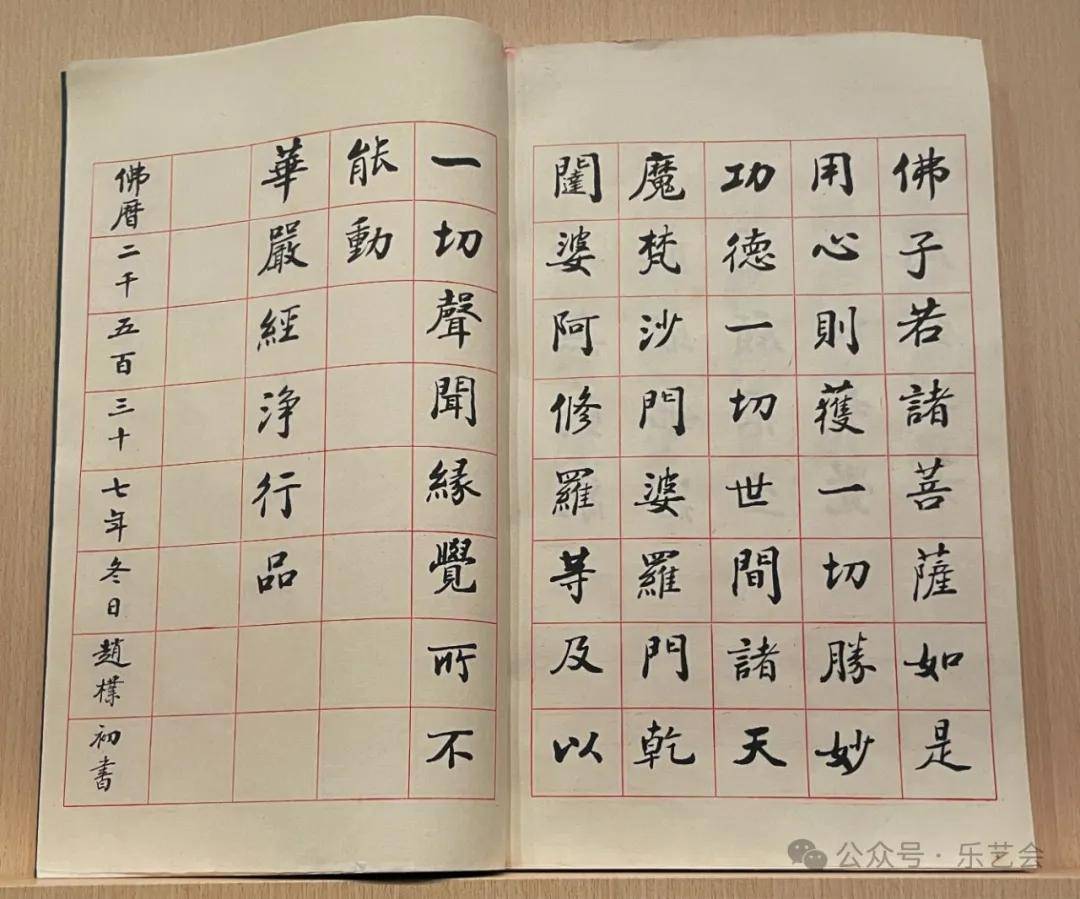 佛子若諸菩薩如是
用心則獲一切勝妙
功德一切世間諸天
魔梵沙門婆羅門乾
闥婆阿修羅等及以
一切聲聞緣覺所不
能動
華嚴經淨行品
佛曆二千五百三十七年冬日趙樸初書
公众号·乐艺会